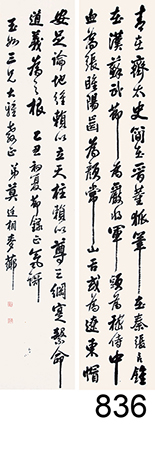 在齊太史簡在晉董狐筆在秦張良錐
在漢蘇武節為嚴將軍頭為嵇侍中
血為張睢陽齒為顏常山舌或為遼東帽
安足論地維賴以立天柱賴以尊三綱實繫命
道義為之根 乙丑初夏節錄正氣歌
玉如三兄大雅教正 弟莫廷相
836